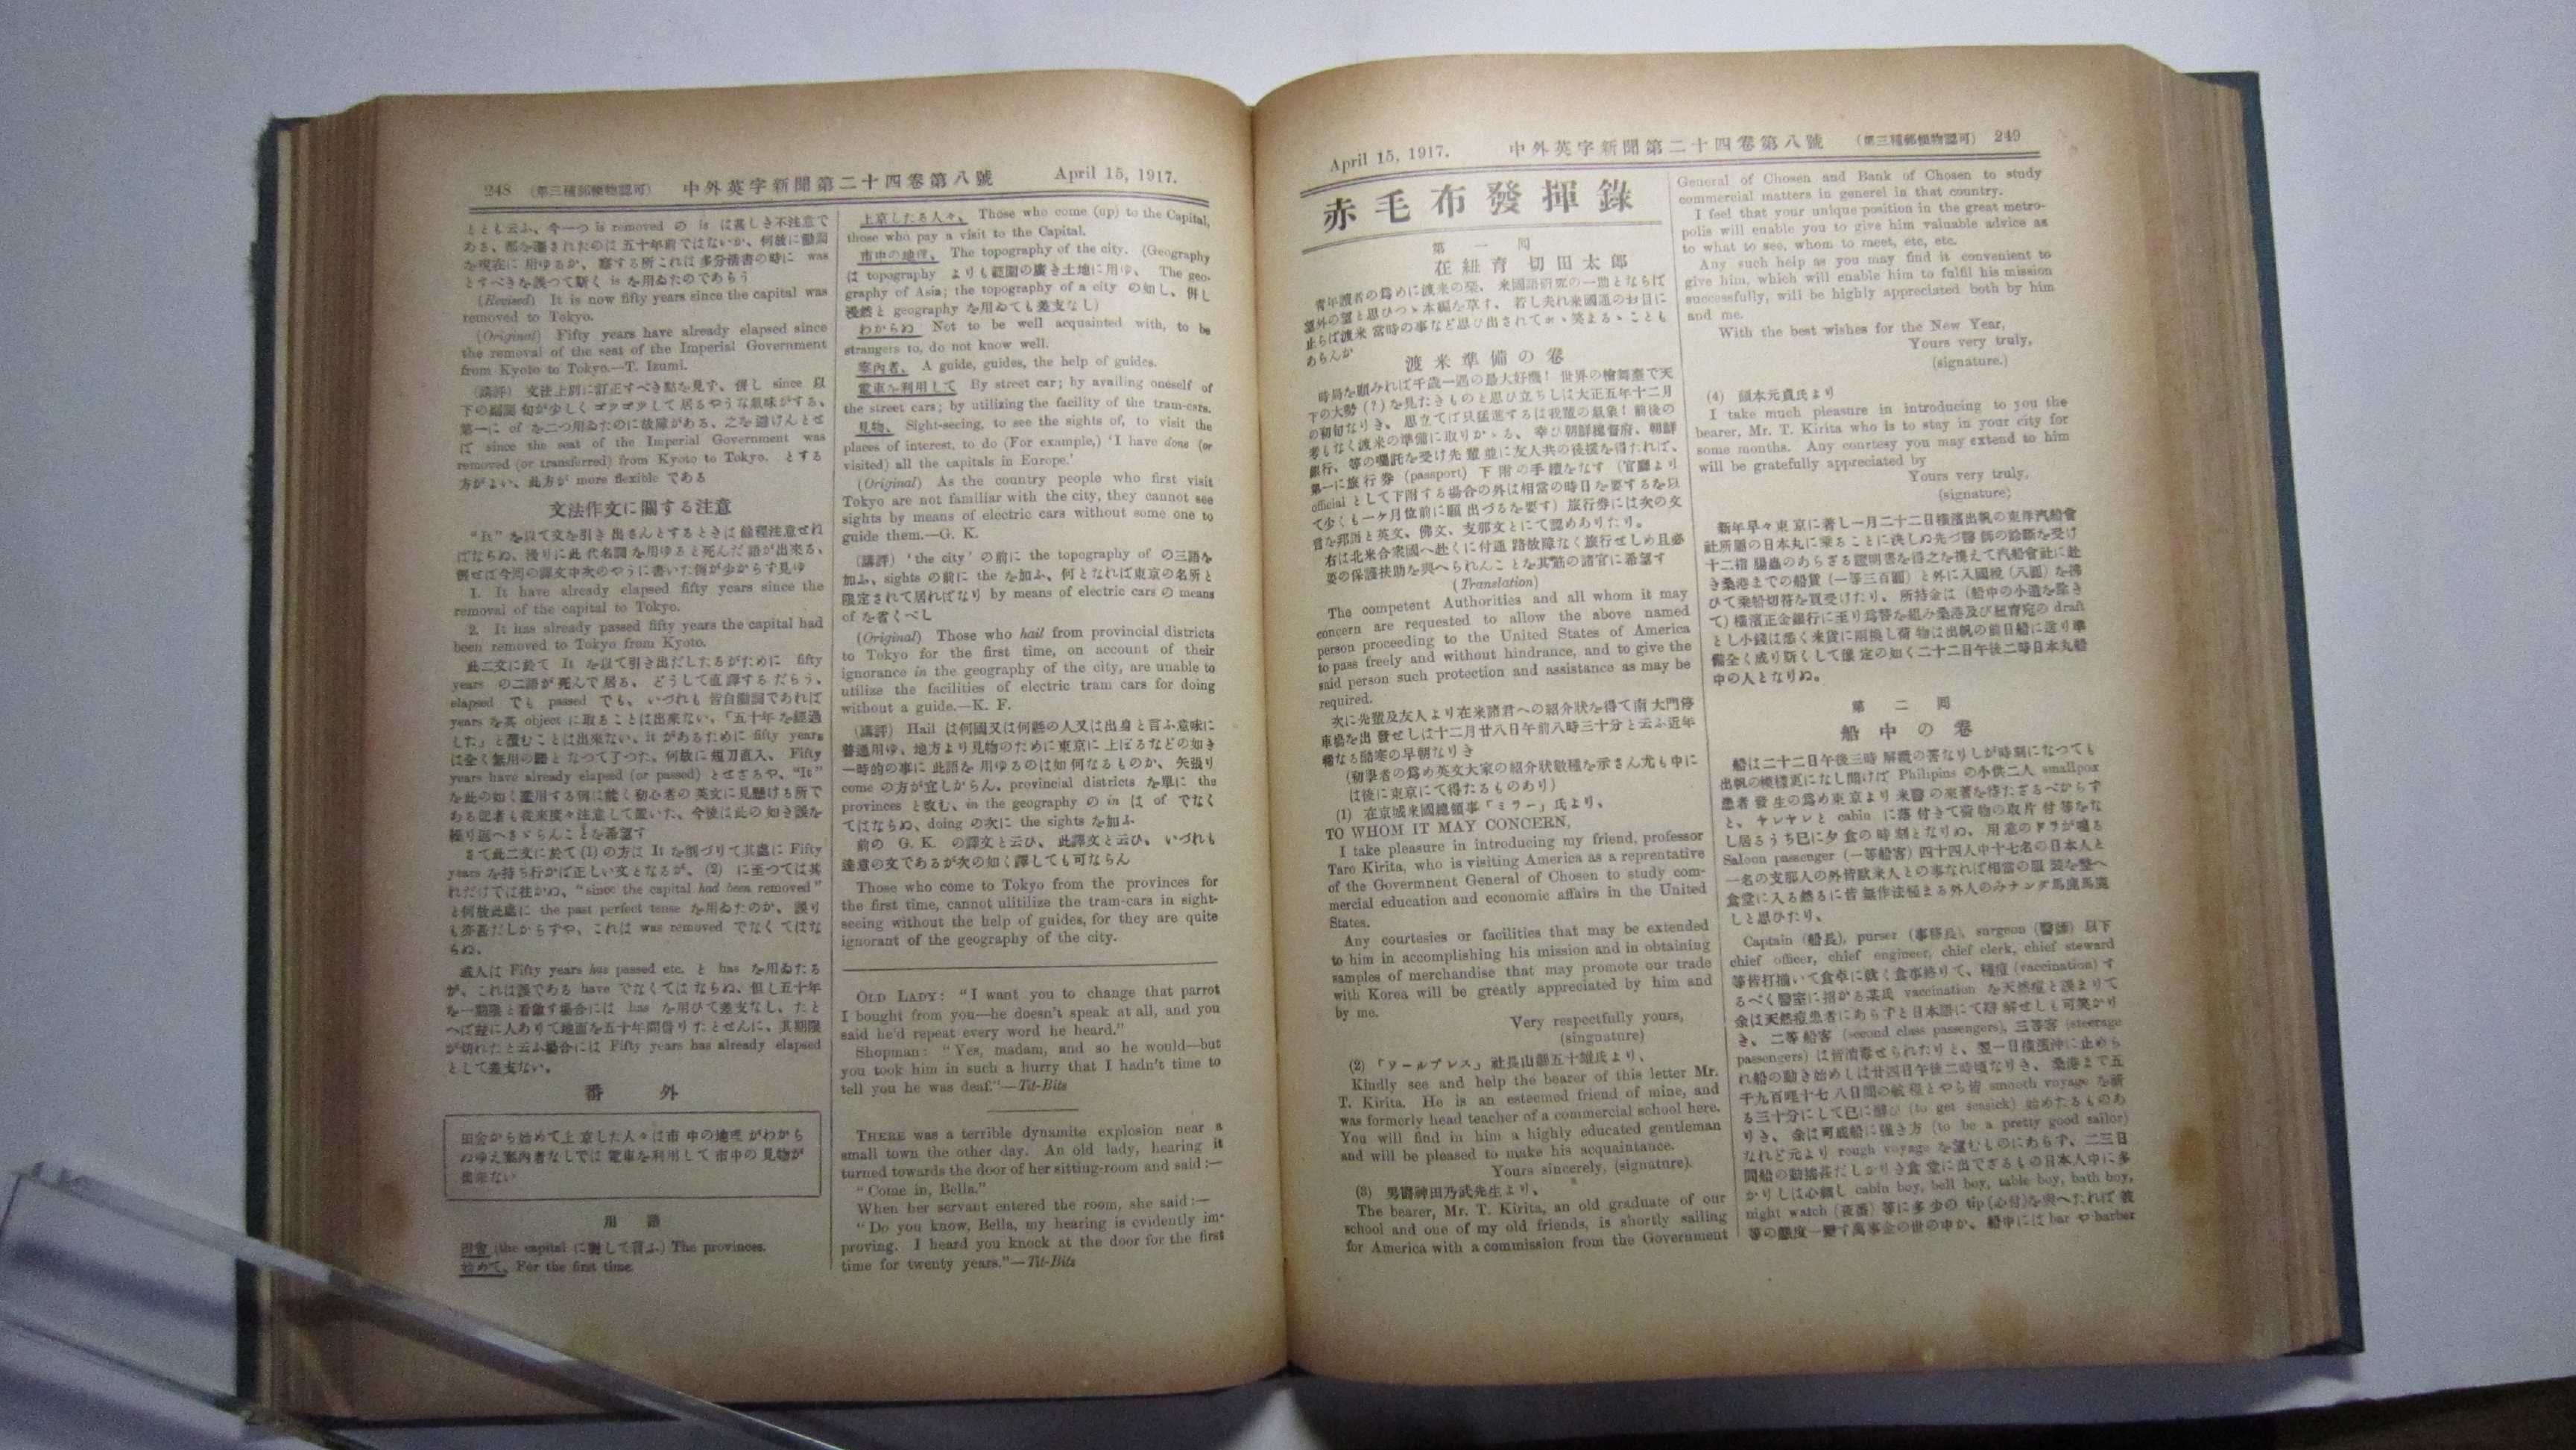 248 (第三種郵便物認可) 中外英字新聞第二十四卷第八號 April 15, 1917.
とも云ふ、今一つ is removed の is は甚しき不注意で
を現在に用ゆるか、察する所これは多分淸書の時に was
とすべきを誤つて斯く is を用ゐたのであらう
(Revised) It is now fifty years since the capital was
removed to Tokyo.
(Original) Fifty years have already elapsed since
the removal of the seat of the Imperial Government
from Kyoto to Tokyo.—T. Izumi.
(講評) 文法上別に訂正すべき點を見ず、併し since 以
下の副詞句が少しくゴタゴタして居るやうな氣味がする、
第一に of を二つ用ゐたのに故障がある、之を避けんとせ
ば since the seat of the Imperial Government was
removed (or transferred) from Kyoto to Tokyo. とする
方がよい、此方が more flexible である
文法作文に關する注意
"It" を以て文を引き出さんとするときは餘程注意せれ
ばならぬ、濫りに此代名詞を用ゆると死んだ語が出來る、
例せば今囘の譯文中次のやうに書いた例が少からず見ゆ
1. It have already elapsed fifty years since the
removal of the capital to Tokyo.
2. It has already passed fifty years the capital had
been removed to Tokyo from Kyoto.
此二文に於て It を以て引き出だしたるがために fifty
years の二語が死んで居る、どうして直譯するだらう、
elapsed でも passed でも、いづれも皆自働詞であれば
years を其 object に取ることは出來ない、「五十年を經過
した」と讀むことは出來ない、it があるために fifty years
は全く無用の語となつて了つた、何故に短刀直入、Fifty
years have already elapsed (or passed) とせざるや、"It"
を此の如く濫用する例は能く初心者の英文に見懸ける所で
ある記者も從來度々注意して置いた、今後は此の如き誤を
繰り返へさゞらんことを希望す
さて此二文に於て (1) の方は It を削づりて其處に Fifty
years を持ち行かば正しい文となるが、(2) に至つては其
れだけでは往かぬ、"since the capital had been removed"
と何故此處に the past perfect tense を用ゐたのか、誤り
も亦甚だしからずや、これは was removed でなくてはな
らぬ、
或人は Fifty years has passed etc. と has を用ゐたる
が、これは誤である have でなくてはならぬ、但し五十年
を一期限と看做す場合には has を用ひて差支なし、たと
へば茲に人ありて地面を五十年間借りたとせんに、其期限
が切れたと云ふ場合には Fifty years has already elapsed
として差支ない、
番外
田舍から始めて上京した人々は市中の地理がわから
ぬゆえ案內者なしでは電車を利用して市中の見物が
出來ない
用語
田舍 (the capital に對して言ふ) The provinces.
始めて、 For the first time.
上京したる人々、 Those who come (up) to the Capital,
those who pay a visit to the Capital.
市中の地理、 The topography of the city. (Geography
は topography よりも範圍の廣き土地に用ゆ、 The geo-
graphy of Asia; the topography of a city の如し、併し
漫然と geography を用ゐても差支なし)
わからぬ Not to be well acquainted with, to be
strangers to, do not know well.
案內者、 A guide, guides, the help of guides.
電車を利用して By street car; by availing oneself of
the street cars; by utilizing the facility of the tram-cars.
見物、 Sight-seeing, to see the sights of, to visit the
places of interest, to do (For example,) 'I have done (or
visited) all the capitals in Europe.'
(Original) As the country people who first visit
Tokyo are not familiar with the city, they cannot see
sights by means of electric cars without some one to
guide them.—G. K.
(講評) 'the city' の前に the topography of の三語を
加ふ、sights の前に the を加ふ、何となれば東京の名所と
限定されて居ればなり by means of electric cars の means
of を省くべし
(Original) Those who hail from provincial districts
to Tokyo for the first time, on account of their
ignorance in the geography of the city, are unable to
utilize the facilities of electric tram cars for doing
without a guide.—K. F.
(講評) Hail は何國又は何縣の人又は出身と言ふ意味に
普通用ゆ、地方より見物のために東京に上ぼるなどの如き
一時的の事に此語を用ゆるのは如何なるものか、矢張り
come の方が宜しからん、provincial districts を單に the
provinces と改む、in the geography の in は of でなく
てはならぬ、doing の次に the sights を加ふ
前の G. K. の譯文と云ひ、此譯文と云ひ、いづれも
達意の文であるが次の如く譯しても可ならん
Those who come to Tokyo from the provinces for
the first time, cannot ulitilize the tram-cars in sight-
seeing without the help of guides, for they are quite
ignorant of the geography of the city.
OLD LADY: "I want you to change that parrot
I bought from you—he doesn't speak at all, and you
said he'd repeat every word he heard."
Shopman: "Yes, madam, and so he would—but
you took him in such a hurry that I hadn't time to
tell you he was deaf."—Tit-Bits
THERE was a terrible dynamite explosion near a
small town the other day. An old lady, hearing it
turned towards the door of her sitting-room and said:—
"Come in, Bella."
When her servant entered the room, she said:—
"Do you know, Bella, my hearing is evidently im-
proving. I heard you knock at the door for the first
time for twenty years."—Tit-Bits
April 15, 1917. 中外英字新聞第二十四卷第八號 (第三種郵便物認可) 249
赤毛布發揮錄
第一囘
在紐育 切田太郎
靑年讀者の爲めに渡米の栞、米國語硏究の一助とならば
望外の望と思ひつゝ本編を草す、若し夫れ米國通のお目に
止らば渡米當時の事など思ひ出されてホヽ笑まるゝことも
あらんか
渡米準備の卷
時局を顧みれば千歲一遇の最大好機! 世界の檜舞臺で天
下の大勢 (?) を見たきものと思ひ立ちしは大正五年十二月
の初旬なりき、思立てば只猛進するは我輩の氣象! 前後の
考もなく渡米の準備に取りかゝる、幸ひ朝鮮總督府、朝鮮
銀行、等の囑託を受け先輩並に友人共の後援を得たれば、
第一に旅行券 (passport) 下附の手續をなす (官廳より
official として下附する場合の外は相當の時日を要するを以
て少くも一ケ月位前に願出づるを要す) 旅行券には次の文
言を邦語と英文、佛文、支那文とにて認めありたり。
右は北米合衆國へ赴くに付通路故障なく旅行せしめ且必
要の保護扶助を與へられんことを其筋の諸官に希望す
(Translation)
The competent Authorities and all whom it may
concern are requested to allow the above named
person proceeding to the United States of America
to pass freely and without hindrance, and to give the
said person such protection and assistance as may be
required.
次に先輩及友人より在米諸君への紹介狀を得て南大門停
車場を出發せしは十二月廿八日午前八時三十分と云ふ近年
稀なる酷寒の早朝なりき
(初學者の爲め英文大家の紹介狀數種を示さん尤も中に
は後に東京にて得たるものあり)
(1) 在京城米國總領事「ミラー」氏より、
TO WHOM IT MAY CONCERN,
I take pleasure in introducing my friend, professor
Taro Kirita, who is visiting America as a reprentative
of the Govermnent General of Chosen to study com-
mercial education and economic affairs in the United
States.
Any courtesies or facilities that may be extended
to him in accomplishing his mission and in obtaining
samples of merchandise that may promote our trade
with Korea will be greatly appreciated by him and
by me.
Very respectfully yours,
(singnature)
(2) 「ソールプレス」社長山縣五十雄氏より、
Kindly see and help the bearer of this letter Mr.
T. Kirita. He is an esteemed friend of mine, and
was formerly head teacher of a commercial school here.
You will find in him a highly educated gentleman
and will be pleased to make his acquaintance.
Yours sincerely, (signature).
(3) 男爵神田乃武先生より、
The bearer, Mr. T. Kirita, an old graduate of our
school and one of my old friends, is shortly sailing
for America with a commission from the Government
General of Chosen and Bank of Chosen to study
commercial matters in generel in that country.
I feel that your unique position in the great metro-
polis will enable you to give him valuable advice as
to what to see, whom to meet, etc, etc.
Any such help as you may find it convenient to
give him, which will enable him to fulfil his mission
successfully, will be highly appreciated both by him
and me.
With the best wishes for the New Year,
Yours very truly,
(signature.)
(4) 頭本元貞氏より
I take much pleasure in introducing to you the
bearer, Mr. T. Kirita who is to stay in your city for
some months. Any conrtesy you may extend to him
will be gratefully appreciated by
Yours very truly,
(signature)
新年早々東京に着し一月二十二日橫濱出帆の東洋汽船會
社所屬の日本丸に乘ることに決しぬ先づ醫師の診斷を受け
十二指腸蟲のあらざる證明書を得之を携えて汽船會社に赴
き桑港までの船賃 (一等三百圓) と外に入國稅 (八圓) を沸
ひて乘船切符を買受けたり、所持金は (船中の小遣を除き
て) 橫濱正金銀行に至り爲替を組み桑港及び紐育宛の draft
とし小錢は悉く米貨に兩換し荷物は出帆の前日船に送り準
備全く成り斯くして豫定の如く二十二日午後二時日本丸船
中の人となりぬ。
第二囘
船中の卷
船は二十二日午後三時解纜の筈なりしが時刻になつても
出帆の模樣更になし聞けば Philipins の小供二人 smallpox
患者發生の爲め東京より米醫の來着を待たざるべからず
と、ヤレヤレと cabin に落付きて荷物の取片付等をな
し居るうち已に夕食の時刻となりぬ、用意のドラが鳴る
Saloon passenger (一等船客) 四十四人中十七名の日本人と
一名の支那人の外皆歐米人との事なれば相當の服裝を整へ
食堂に入る然るに皆無作法極まる外人のみナンダ馬鹿馬鹿
しと思ひたり、
Captain (船長), purser (事務長), surgeon (醫師) 以下
chief officer, chief engineer, chief clerk, chief steward
等皆打揃いて食卓に就く食事終りて、種痘 (vaccination) す
るべく醫室に招かる某氏 vaccination を天然痘と誤まりて
余は天然痘患者にあらずと日本語にて辯解せしも可笑かり
き、二等船客 (second class passengers), 三等客 (steerage
passengers) は皆消毒せられたりと、翌一日橫濱沖に止めら
れ船の動き始めしは廿四日午後二時頃なりき、桑港まで五
千九百哩十七八日間の航程とやら皆 smooth voyage を祈
る三十分にして已に醉ひ (to get seasick) 始めたるものあ
りき、余は可成船に强き方 (to be a pretty good sailor)
なれど元より rough voyage を望むものにあらず、二三日
間船の動搖甚だしかりき食堂に出でざるもの日本人中に多
かりしは心細し cabin boy, bell boy, table boy, bath boy,
night watch (夜番) 等に多少の tip (心付) を與へたれば彼
等の態度一變す萬事金の世の中か、船中には bar や barber